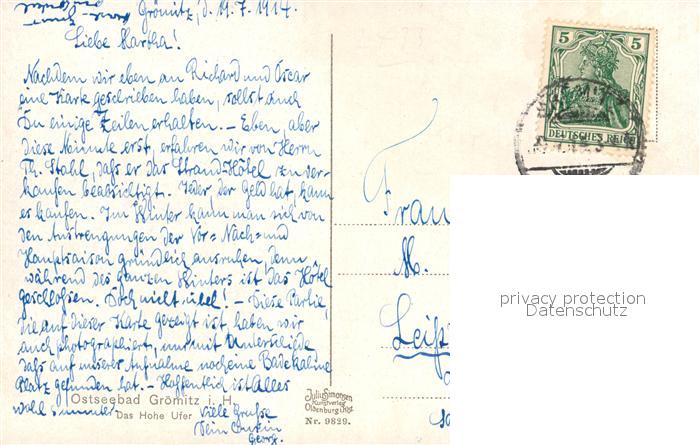 Grömitz, d. 19.7.1914.
Liebe Martha!
Nachdem wir eben an Richard und Oscar
eine Karte geschrieben haben, sollst auch
Du einige Zeilen erhalten. – Eben, aber
diese Minute erst, erfahren wir von Herrn
Th. Stahl, daß er das Strand-Hôtel zu ver-
kaufen beabsichtigt. Jeder, der Geld hat, kann
es kaufen. Im Winter kann man sich von
den Anstrengungen der Vor= Nach= und
Hauptsaison gründlich ausruhen, denn
während des ganzen Winters ist das Hôtel
geschloßen. Doch nicht übel! – Diese Partie,
die auf dieser Karte gezeigt ist, haben wir
auch photographiert, nur mit Unterschiede
daß auf unserer Aufnahme noch eine Badekabine
Platz gefunden hat. – Hoffentlich ist Alles
wohl
Viele Grüße
Dein
Georg.
Ostseebad Grömitz i. H.
Das Hohe Ufer
Julius Simonsen
Kunstverlag
Oldenburg i. Hol.
Nr. 9829.
5 5
DEUTSCHES REICH
Frau
M.
Leip
privacy protection
Datenschutz